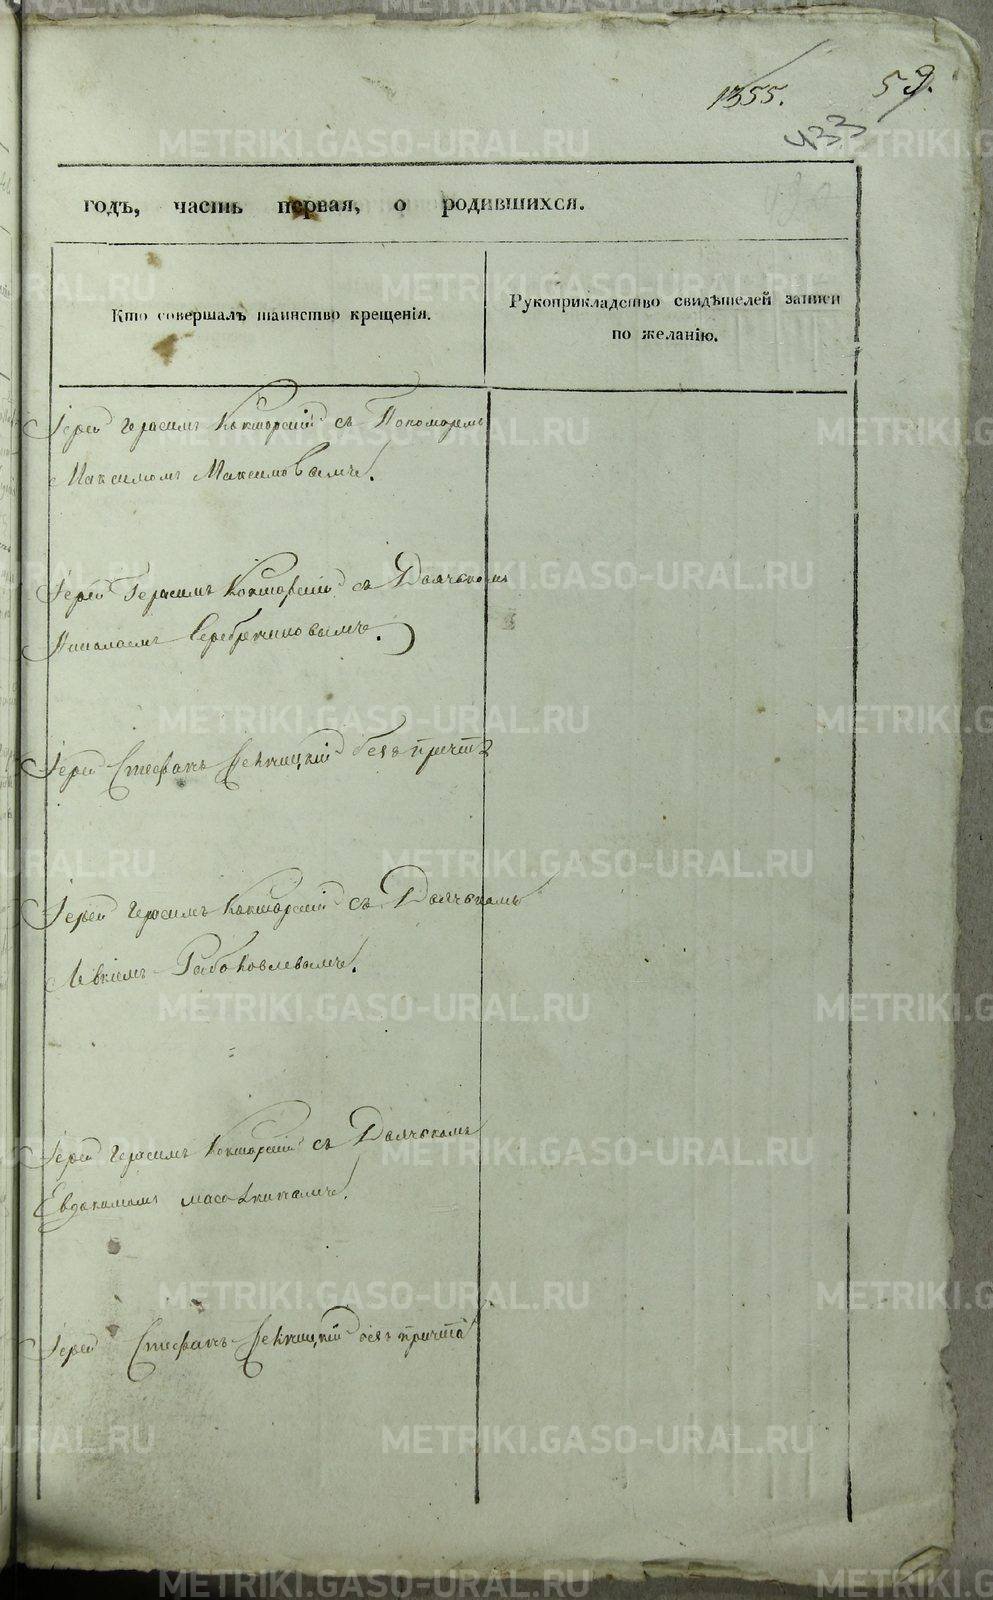 1355.
59.
433
годъ, часть первая, о родившихся.
Кто совершалъ таинство крещенія.
Рукоприкладство свидѣтелей записи
по желанію.
Іерей Герасимъ Кокшарскій съ Пономаремъ
Максимомъ Максимовымъ.
Іерей Герасимъ Кокшарскій съ Дьячькомъ
Николаемъ Серебрениковымъ.
Іерей Стефанъ безъ причта
Іерей Герасимъ Кокшарскій съ Дьячькомъ
Іерей Герасимъ Кокшарскій съ Дьячькомъ
Евдокимомъ
Іерей Стефанъ безъ причта
METRIKI.GASO-URAL.RU